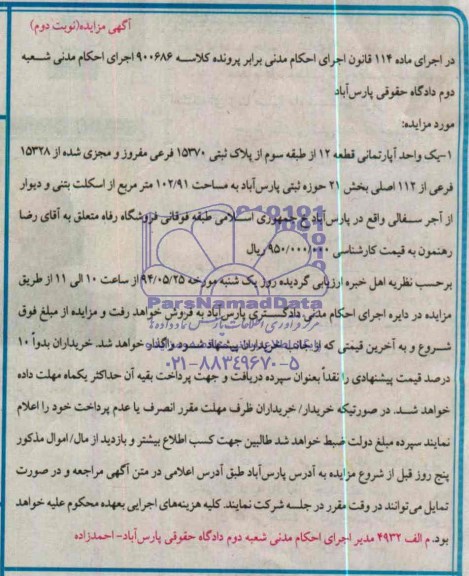 آگهی مزایده(نوبت دوم)
در اجرای ماده ۱۱۴ قانون اجرای احکام مدنی برابر پرونده کلاسه ۹۰۰۶۸۶ اجرای احکام مدنی شعبه
دوم دادگاه حقوقی پارس‌آباد
مورد مزایده:
۱-یک واحد آپارتمانی قطعه ۱۲ از طبقه سوم از پلاک ثبتی ۱۵۳۷۰ فرعی مفروز و مجزی شده از ۱۵۳۲۸
فرعی از ۱۱۲ اصلی بخش ۲۱ حوزه ثبتی پارس‌آباد به مساحت ۱۰۲/۹۱ متر مربع از اسکلت بتنی و دیوار
از آجر سفالی واقع در پارس‌آباد خ جمهوری اسلامی طبقه فوقانی فروشگاه رفاه متعلق به آقای رضا
رهنمون به قیمت کارشناسی ۹۵۰/۰۰۰/۰۰۰ ریال
برحسب نظریه اهل خبره ارزیابی گردیده روز یک شنبه مورخه ۹۴/۰۵/۲۵ از ساعت ۱۰ الی ۱۱ از طریق
ParsNamadData
مزایده در دایره اجرای احکام مدنی دادگستری پارس‌آباد به فروش خواهد رفت و مزایده از مبلغ فوق
شروع و به آخرین قیمتی که از جانب خریداران پیشنهاد شود واگذار خواهد شد. خریداران بدواً ۱۰
۰۲۱-۸۸۳۴۹۶۷۰-۵
درصد قیمت پیشنهادی را نقداً بعنوان سپرده دریافت و جهت پرداخت بقیه آن حداکثر یکماه مهلت داده
خواهد شد. در صورتیکه خریدار/ خریداران ظرف مهلت مقرر انصرف یا عدم پرداخت خود را اعلام
نمایند سپرده مبلغ دولت ضبط خواهد شد طالبین جهت کسب اطلاع بیشتر و بازدید از مال/ اموال مذکور
پنج روز قبل از شروع مزایده به آدرس پارس‌آباد طبق آدرس اعلامی در متن آگهی مراجعه و در صورت
تمایل می‌توانند در وقت مقرر در جلسه شرکت نمایند. کلیه هزینه‌های اجرایی بعهده محکوم علیه خواهد
بود. م الف ۴۹۳۲ مدیر اجرای احکام مدنی شعبه دوم دادگاه حقوقی پارس‌آباد- احمدزاده